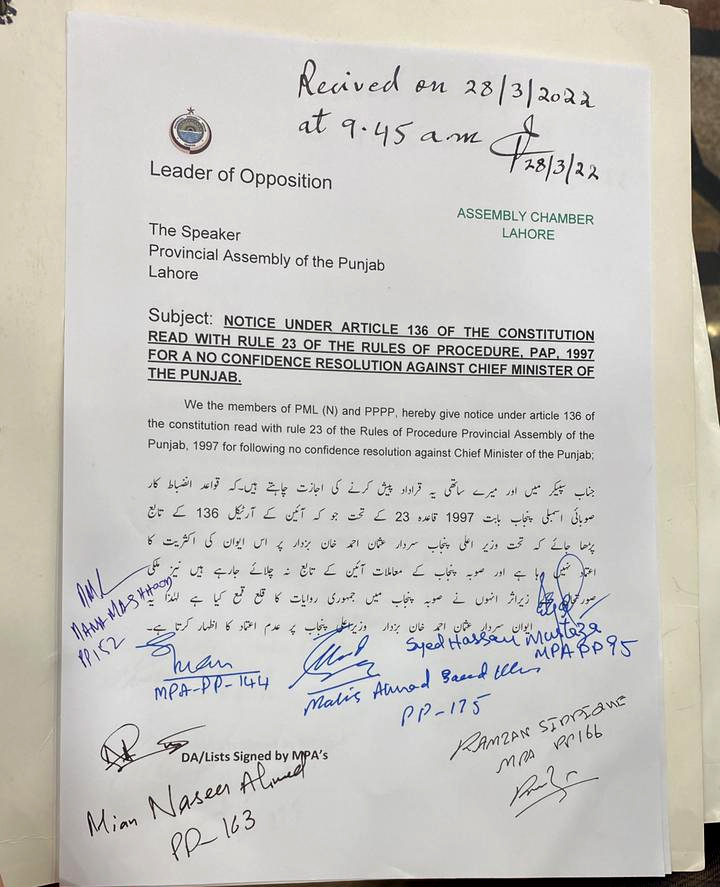 Recived on 28/3/2022
at 9.45 a.m
28/3/22
Leader of Opposition
ASSEMBLY CHAMBER
LAHORE
The Speaker
Provincial Assembly of the Punjab
Lahore
Subject: NOTICE UNDER ARTICLE 136 OF THE CONSTITUTION
READ WITH RULE 23 OF THE RULES OF PROCEDURE, PAP, 1997
FOR A NO CONFIDENCE RESOLUTION AGAINST CHIEF MINISTER OF
THE PUNJAB.
We the members of PML (N) and PPPP, hereby give notice under article 136 of
the constitution read with rule 23 of the Rules of Procedure Provincial Assembly of the
Punjab, 1997 for following no confidence resolution against Chief Minister of the Punjab;
جناب سپیکر میں اور میرے ساتھی یہ قراداد پیش کرنے کی اجازت چاہتے ہیں۔کہ قواعد انضباط کار
صوبائی اسمبلی پنجاب بابت 1997 قاعدہ 23 کے تحت جو کہ آئین کے آرٹیکل 136 کے تابع
پڑھا جائے کہ تحت وزیر اعلی پنجاب سردار عثمان احمد خان بزدار پر اس ایوان کی اکثریت کا
اعتماد نہیں رہا ہے اور صوبہ پنجاب کے معاملات آئین کے تابع نہ چلائے جارہے ہیں نیز ملکی
زیراثر انہوں نے صوبہ پنجاب میں جمہوری روایات کا قلع قمع کیا ہے لہٰذا یہ
ایوان سردار عثمان احمد خان بزدار وزیر اعلیٰ پنجاب پر عدم اعتماد کا اظہار کرتا ہے۔
RANA MASHHOOD
PP152
MPA-PP-144
Syed Hassan Murtaza
MPA PP 95
Malik Ahmad Saeed Khan
PP-175
DA/Lists Signed by MPA's
Mian Naseer Ahmed
PP-163
RAMZAN SIDDIQUE
MPA PP166